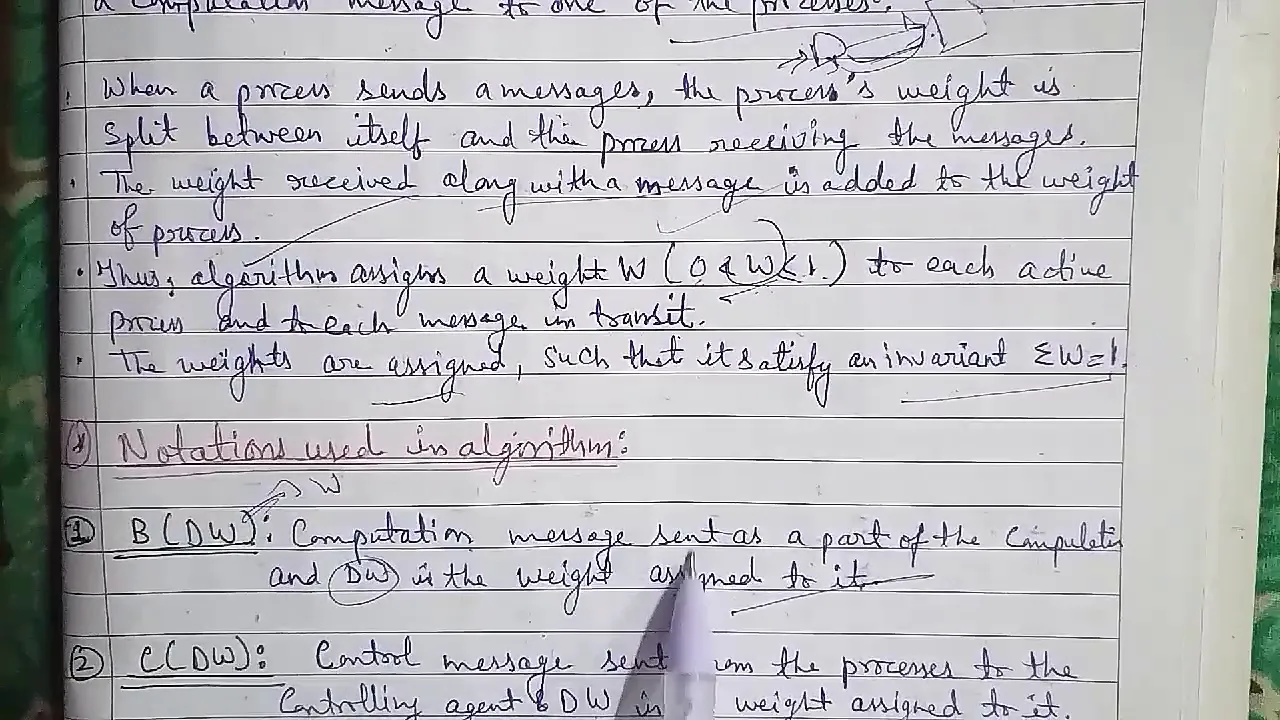 a computation message to one of the processes.
When a process sends a messages, the process's weight is
Split between itself and the process receiving the messages.
The weight received along with a message is added to the weight
of process.
Thus, algorithm assigns a weight W (0 < W ≤ 1.) to each active
process and to each message in transit.
The weights are assigned, such that it satisfy an invariant ΣW=1.
Notations used in algorithm:
W
① B(DW): Computation message sent as a part of the Computation
and DW is the weight assigned to it
② C(DW): Control message sent the processes to the
Controlling agent & DW is weight assigned to it.